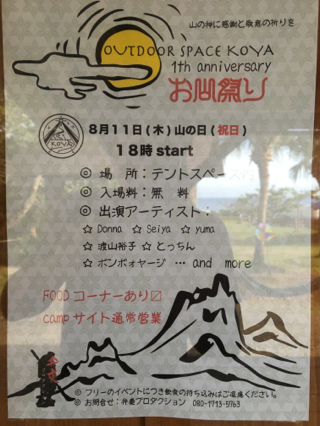 山の神に感謝と敬意の祈りを
OUTDOOR SPACE KOYA
1th anniversary
お山祭り
KOYA
8月11日(木)山の日(祝日)
18時 start
◎ 場 所:テントスペース
◎ 入場料:無 料
◎ 出演アーティスト:
☆ Donna ☆ Seiya ☆ yuma
☆ 波山裕子 ☆ とっちん
☆ ボンボォヤージ … and more
FOOD コーナーあり〼
camp サイト通常営業
◎ フリーのイベントにつき飲食の持ち込みはご遠慮ください。
◎ お問合せ:弁慶プロダクション 080-1713-5763